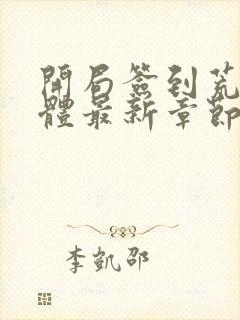 開局簽到荒
體最新章節
李凱邵